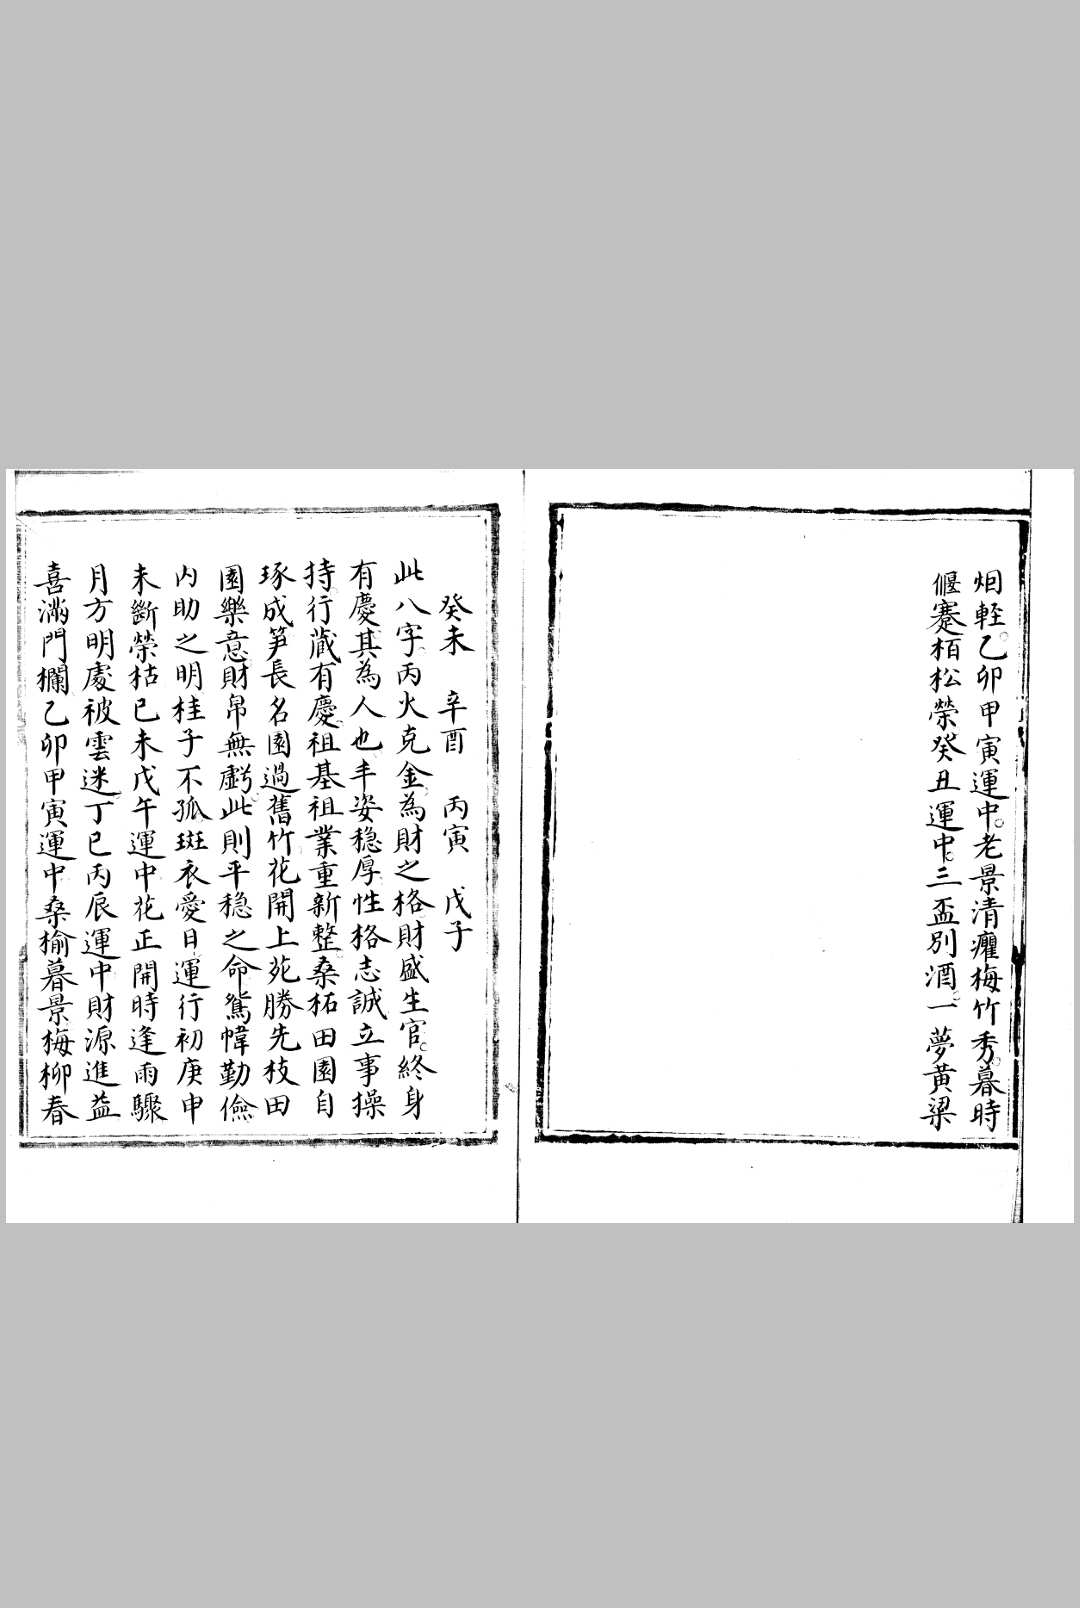 烟輕乙卯甲寅運中老景清癯梅竹秀暮時
偃蹇栢松榮癸丑運中三盃別酒一夢黃梁
癸未 辛酉 丙寅 戊子
此八字丙火克金為財之格財盛生官終身
有慶其為人也丰姿穩厚性格志誠立事操
持行藏有慶祖基祖業重新整桑柘田園自
琢成笋長名園過舊竹花開上苑勝先枝田
園樂意財帛無虧此則平穩之命鴛幃勤儉
內助之明桂子不孤斑衣愛日運行初庚申
未斷榮枯己未戊午運中花正開時逢雨驟
月方明處被雲迷丁巳丙辰運中財源進益
喜滿門欄乙卯甲寅運中桑榆暮景梅柳春